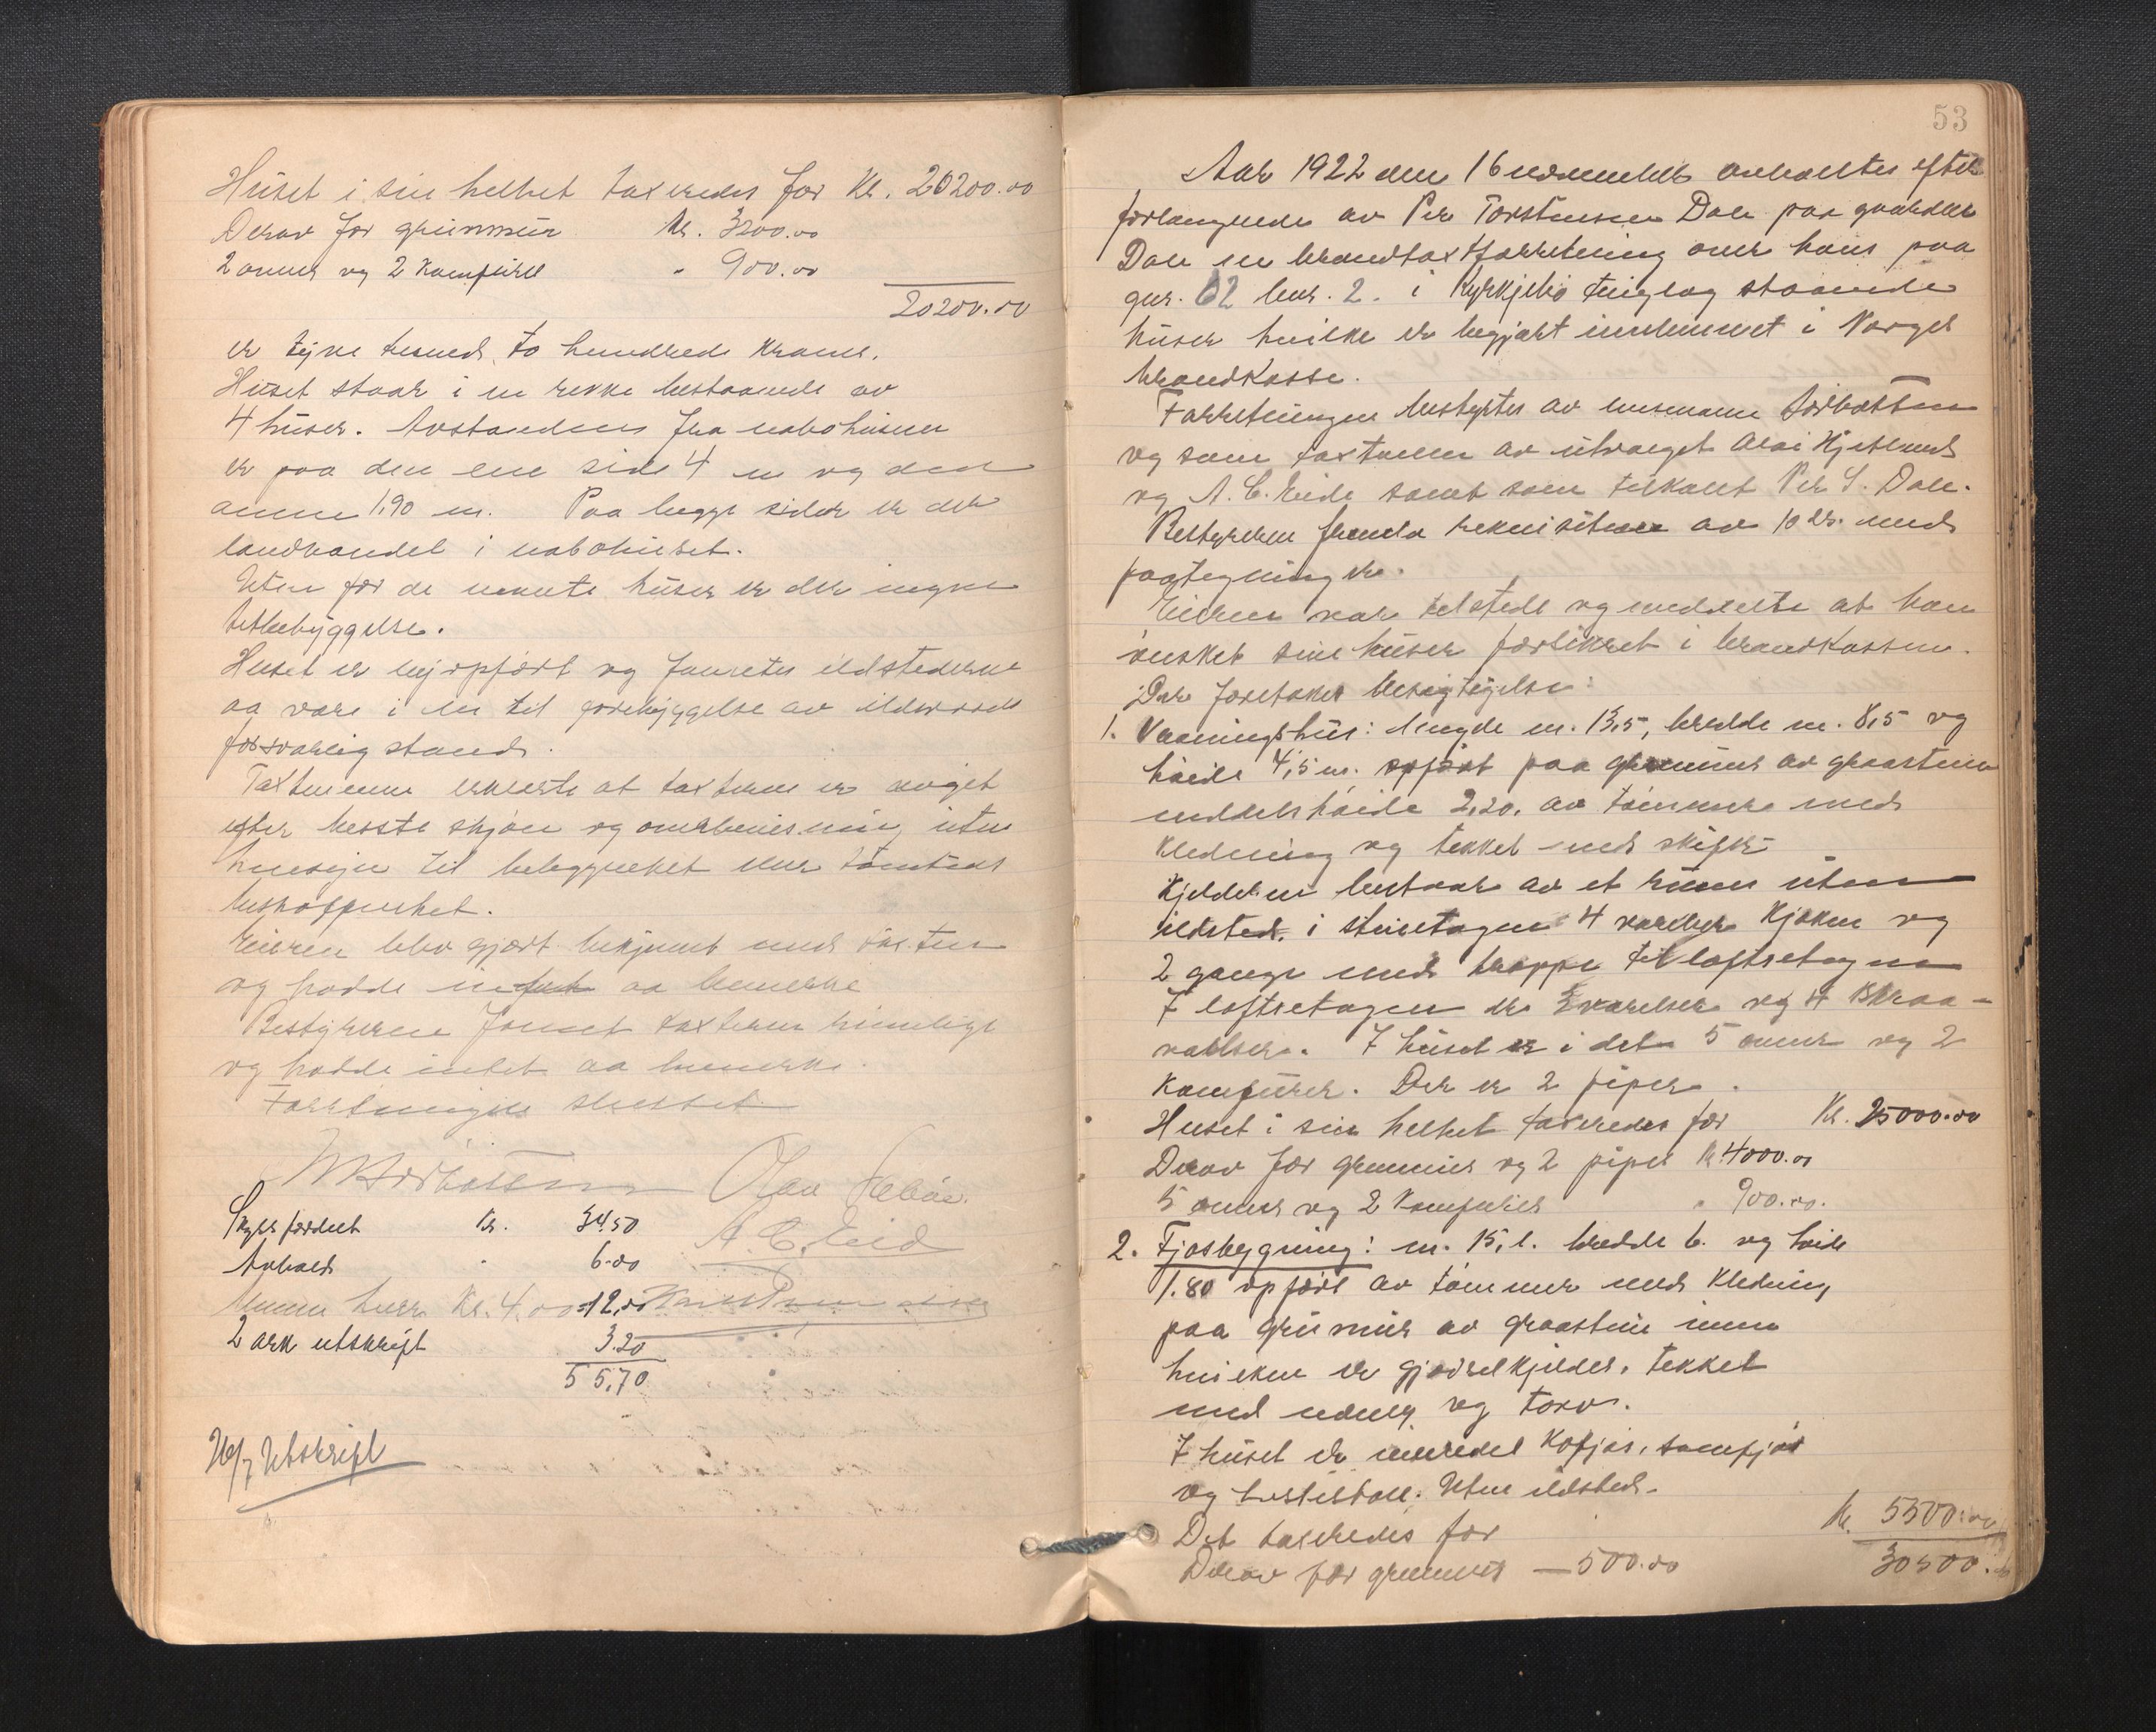 Huset i sin helhet taxeredes for Kr. 20200.00
Derav for grunmur Kr. 3200.00
2 ovner og 2 Komfurer " 900.00
20200.00
er tyve tusend to hundrede Kroner.
Huset staar i en rekke bestaaende av
4 huser. Avstanden fra nabohusene
er paa den ene side 4 m og den
annen 1.90 m. Paa begge sider er der
landhandel i nabohuset.
Uten for de nevnte huser er der ingen
tetbebyggelse.
Huset er nyopført og fantes ildstederne
aa være i en til forebyggelse av ildsvaade
forsvarlig stand.
Taxtmenne erklærte at taxterne er avgit
efter beste skjøn og overbevisning uten
hensyn til beliggenhet eller tomtens
beskaffenhet.
Eieren blev gjort bekjent med taxten
og hadde intet aa bemerke
Bestyreren fannt taxterne rimelige
og hadde intet aa bemerke.
Forretningen sluttet
Olav
A. E. Eide
Skyssgodtgj Kr. 34.50
Avhold " 6.00
Kr. 4.00 = 12.00
2 ark utskrift 3.20
55,70
Utskrift
53
Aar 1922 den 16 november avholdtes efter
forlangende av Per Torstensen Dale paa gaarden
Dale en brandtaxtforretning over hans paa
gnr. 62 bnr. 2. i Kyrkjebø tinglag staaende
huser hvilke er begjært innlemmet i Norges
brandkasse.
Forretningen bestyrtes av lensmann Hordbotten
og som taxtmenn av utvalget Olai Hjetland
og A. E. Eide samt som tilkallt Per S. Dale.
Bestyreren fremla rekvisition av 10 ds. med
paategning
Eieren var tilstede og meddelte at han
ønsket sine huser forsikret i brandkassen.
Der foretokes besigtigelse:
1. Vaaningshus: lengde m. 13,5, bredde m. 8,5 og
høide 4,5 m. opført paa grunmur av graastein
middelshøide 2,20. av tømmer med
kledning og tekket med skifer
Kjelderen bestaar av et rum uten
ildsted. i stueetagen 4 værelser Kjøken og
2 gange med trappe til loftsetagen
I loftsetagen er 3 værelser og 4 skraa-
værelser. I huset er i det 5 ovner og 2
Komfurer. Der er 2 piper.
Huset i sin helhet taxeredes for Kr. 25000.00
Derav for grunmur og 2 piper Kr. 4000.00
5 ovner og 2 komfurer " 900.00.
2. Fjøsbygning: m. 15, l. bredde 6. og høide
1.80 opført av tømmer med kledning
paa grunmur av graastein innen
hvilken er gjødselkjelder. tekket
med never og torv.
I huset er innredet Kofjøs, sauefjøs
og hestestall. Uten ildsted.
Det taxeredes for Kr. 5500.00
Derav for grunmur — 500.00 30500.